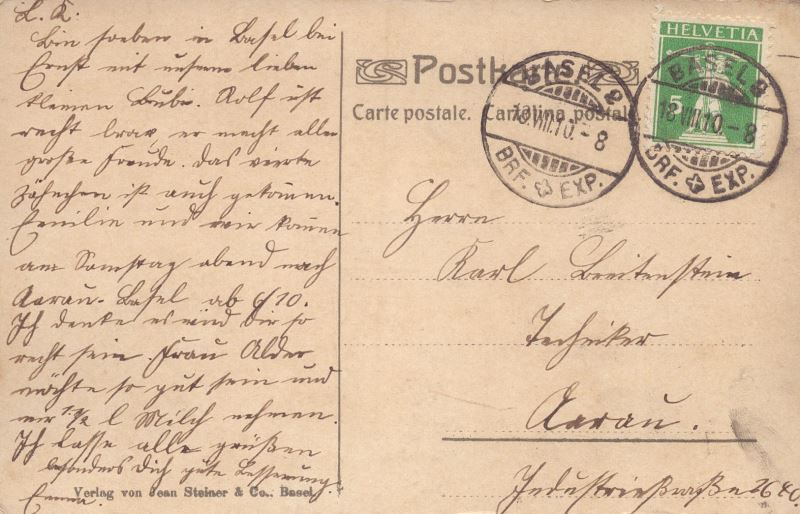 L. K.
Bin soeben in Basel bei
Ernst mit unserm lieben
kleinen Bubi. Rolf ist
recht brav er macht allen
große Freude. Das vierte
Zähnchen ist auch gekommen.
Emilie und wir kommen
am Samstag abend nach
Aarau-Basel ab 6 10.
Ich denke es wird Dir so
recht sein. Frau Alder
möchte so gut sein und
mir 1 1/2 l Milch nehmen.
Ich lasse alle grüßen
besonders Dich gute Besserung.
Emma.
Verlag von Jean Steiner & Co., Basel
Postkarte
Carte postale. Cartolina postale.
HELVETIA
5
BASEL 2
18.VIII.10.-8
BRF. EXP.
BASEL 2
18.VIII.10.-8
BRF. EXP.
Herrn
Karl Breitenstein
Techniker
Aarau.
Industriestraße